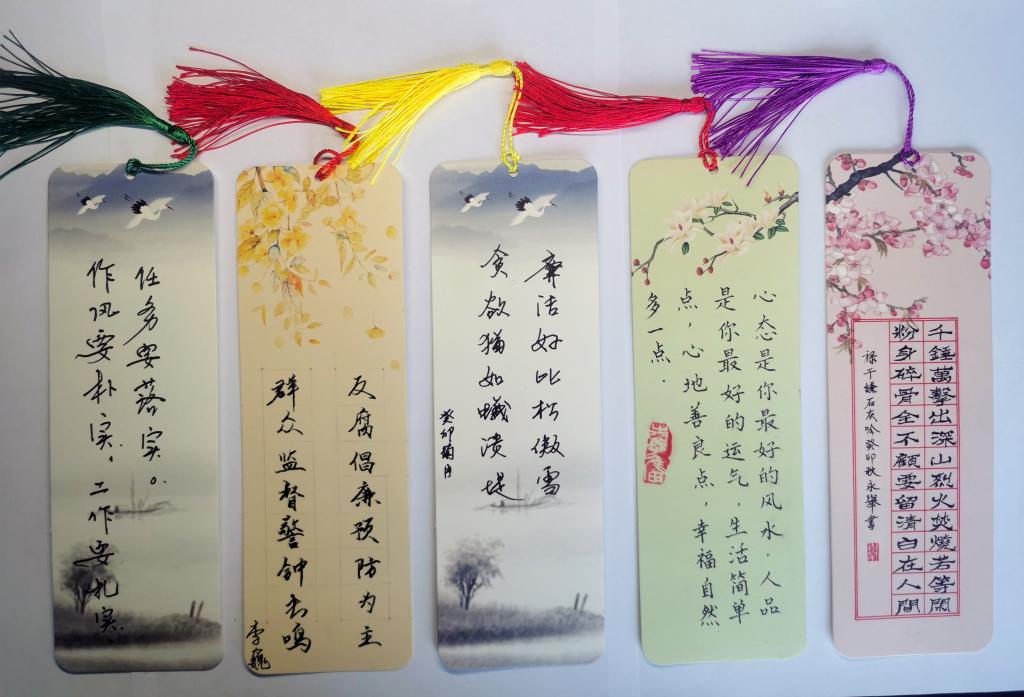 任务要落实。
作风要朴实，工作要扎实.
反腐倡廉预防为主
群众监督警钟长鸣
李巍
廉洁好比松傲雪
贪欲猶如蟻溃堤
癸卯菊月
心态是你最好的风水，人品
是你最好的运气，生活简单
点，心地善良点，幸福自然
多一点.
千錘萬擊出深山烈火焚燒若等閑
粉身碎骨全不顧要留清白在人間
録于謙石灰吟癸卯秋永舉書